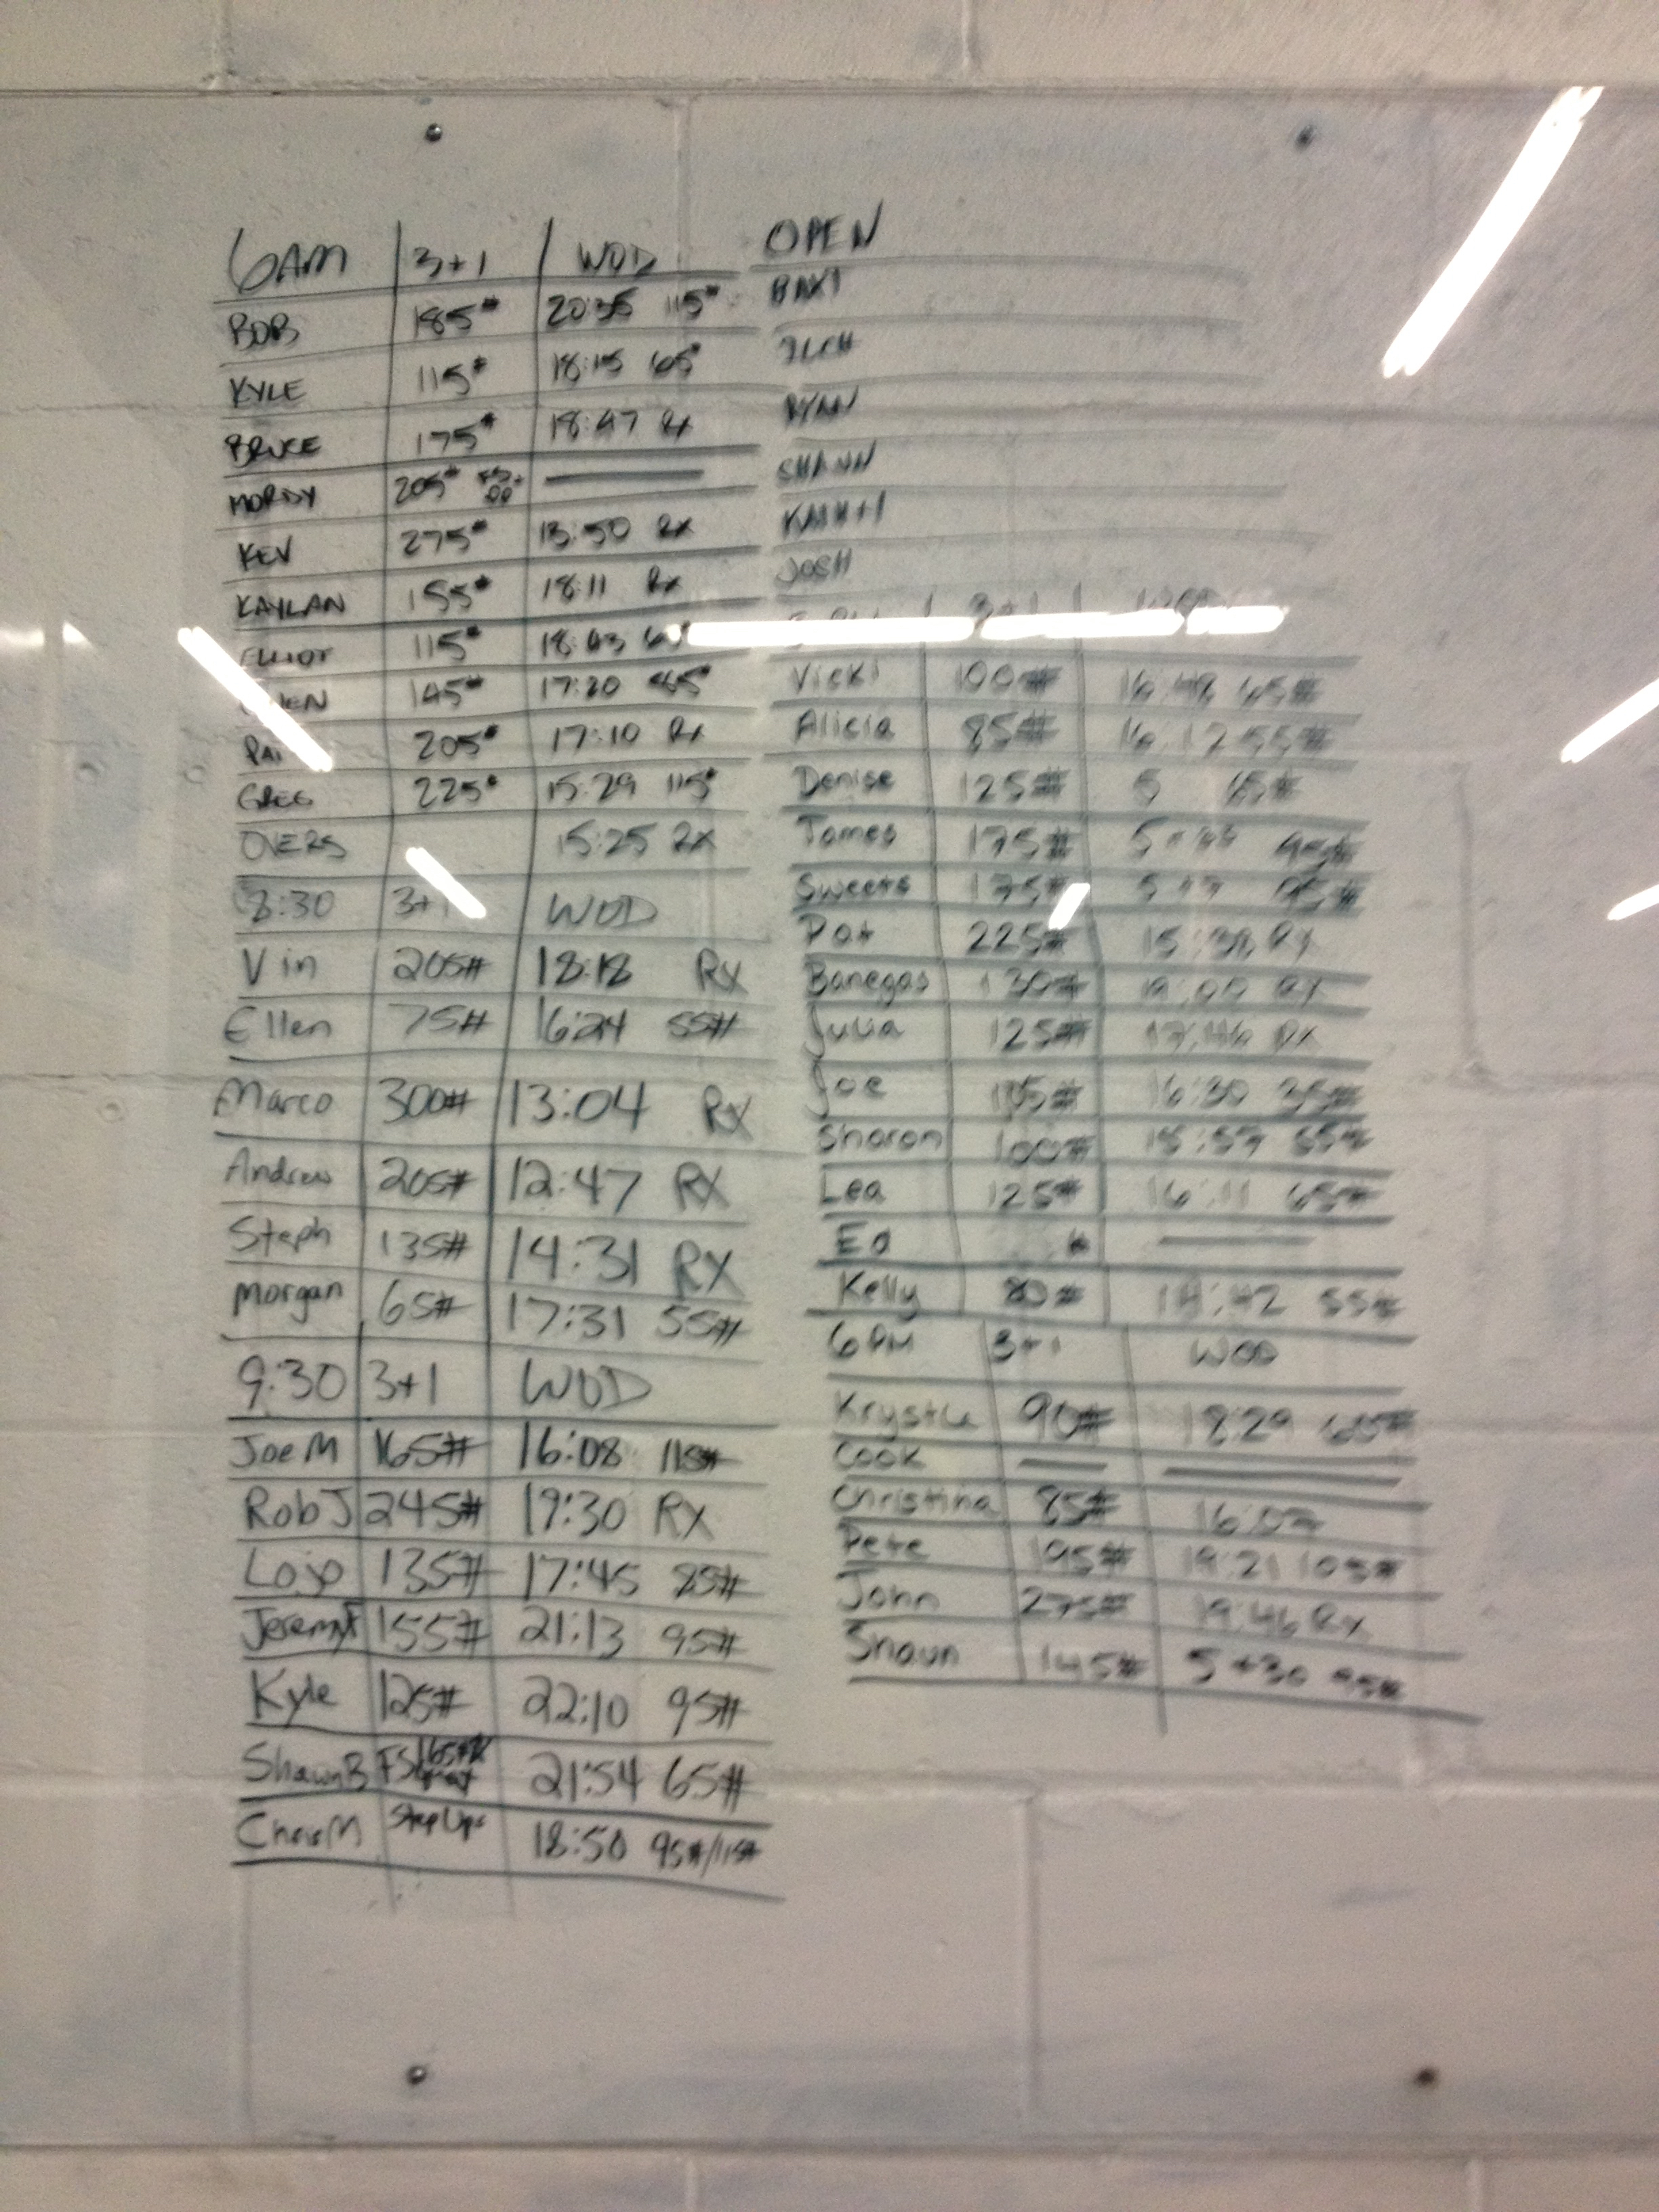 6AM 3+1 WOD
BOB 185# 20:35 115#
KYLE 115# 18:15 65#
BRUCE 175# 18:47 Rx
MORDY 205#
KEV 275# 13:50 Rx
KAYLAN 155# 18:11 Rx
ELLIOT 115# 18:43
145# 17:20
PAT 205# 17:10 Rx
GREG 225# 15:29 115#
OVERS 15:25 RX
8:30 3+1 WOD
Vin 205# 18:18 RX
Ellen 75# 16:24 55#
Marco 300# 13:04 RX
Andrew 205# 12:47 RX
Steph 135# 14:31 RX
Morgan 65# 17:31 55#
9:30 3+1 WOD
Joe M 165# 16:08 115#
Rob J 245# 19:30 RX
135# 17:45 85#
155# 21:13 95#
Kyle 125# 22:10 95#
Shawn B FS 21:54 65#
Chris M Step Ups 18:50 95#/115#
OPEN
RYAN
SHAWN
JOSH
3+1
Vicki 100# 16:48 65#
Alicia 85# 16:12 55#
Denise 125# 5 65#
James 175#
Sweets 175#
Pat 225# RX
Banegas 130# 19:00 RX
Julia 125# 17:46 RX
Joe 16:30 35#
Sharon 100# 55#
Lea 125# 16:11 65#
Ed
Kelly 80# 55#
6PM 3+1 WOD
Krystle 90# 18:29 65#
Cook
Christina 85# 16:07
Pete 195# 19:21 103#
John 275# 19:46 Rx
Shaun 145# 5+30 95#